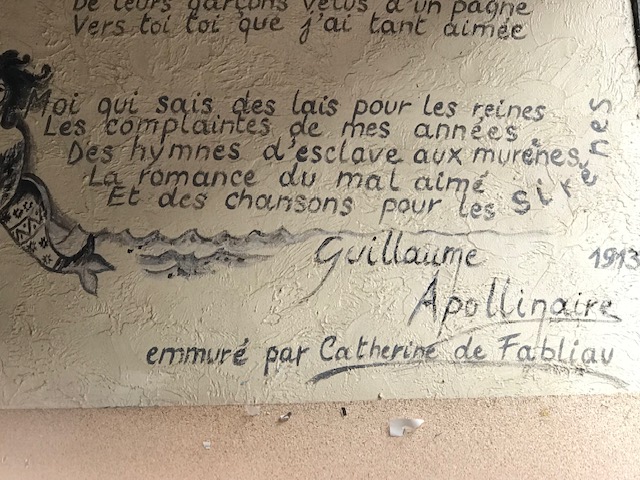 De leurs garçons vêtus d'un pagne
Vers toi toi que j'ai tant aimée
Moi qui sais des lais pour les reines
Les complaintes de mes années
Des hymnes d'esclave aux murènes
La romance du mal aimé
Et des chansons pour les sirènes
Guillaume 1913
Apollinaire
emmuré par Catherine de Fabliau